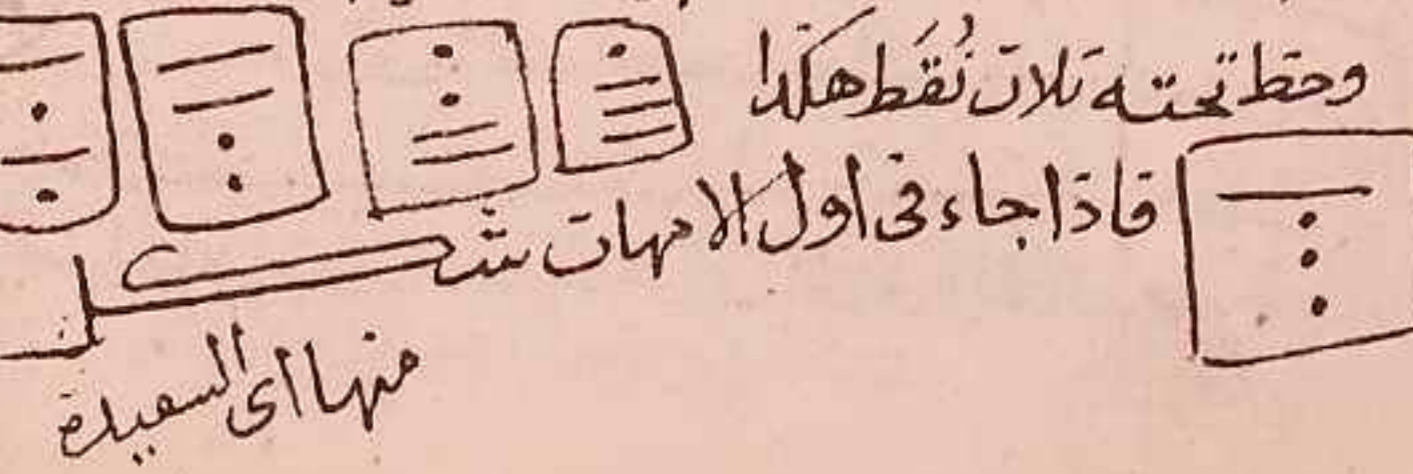 وحط تحته تلات نُقَط هكَذا
فاذا جاء فى اول الامهات شكل
منها اى السعيدة